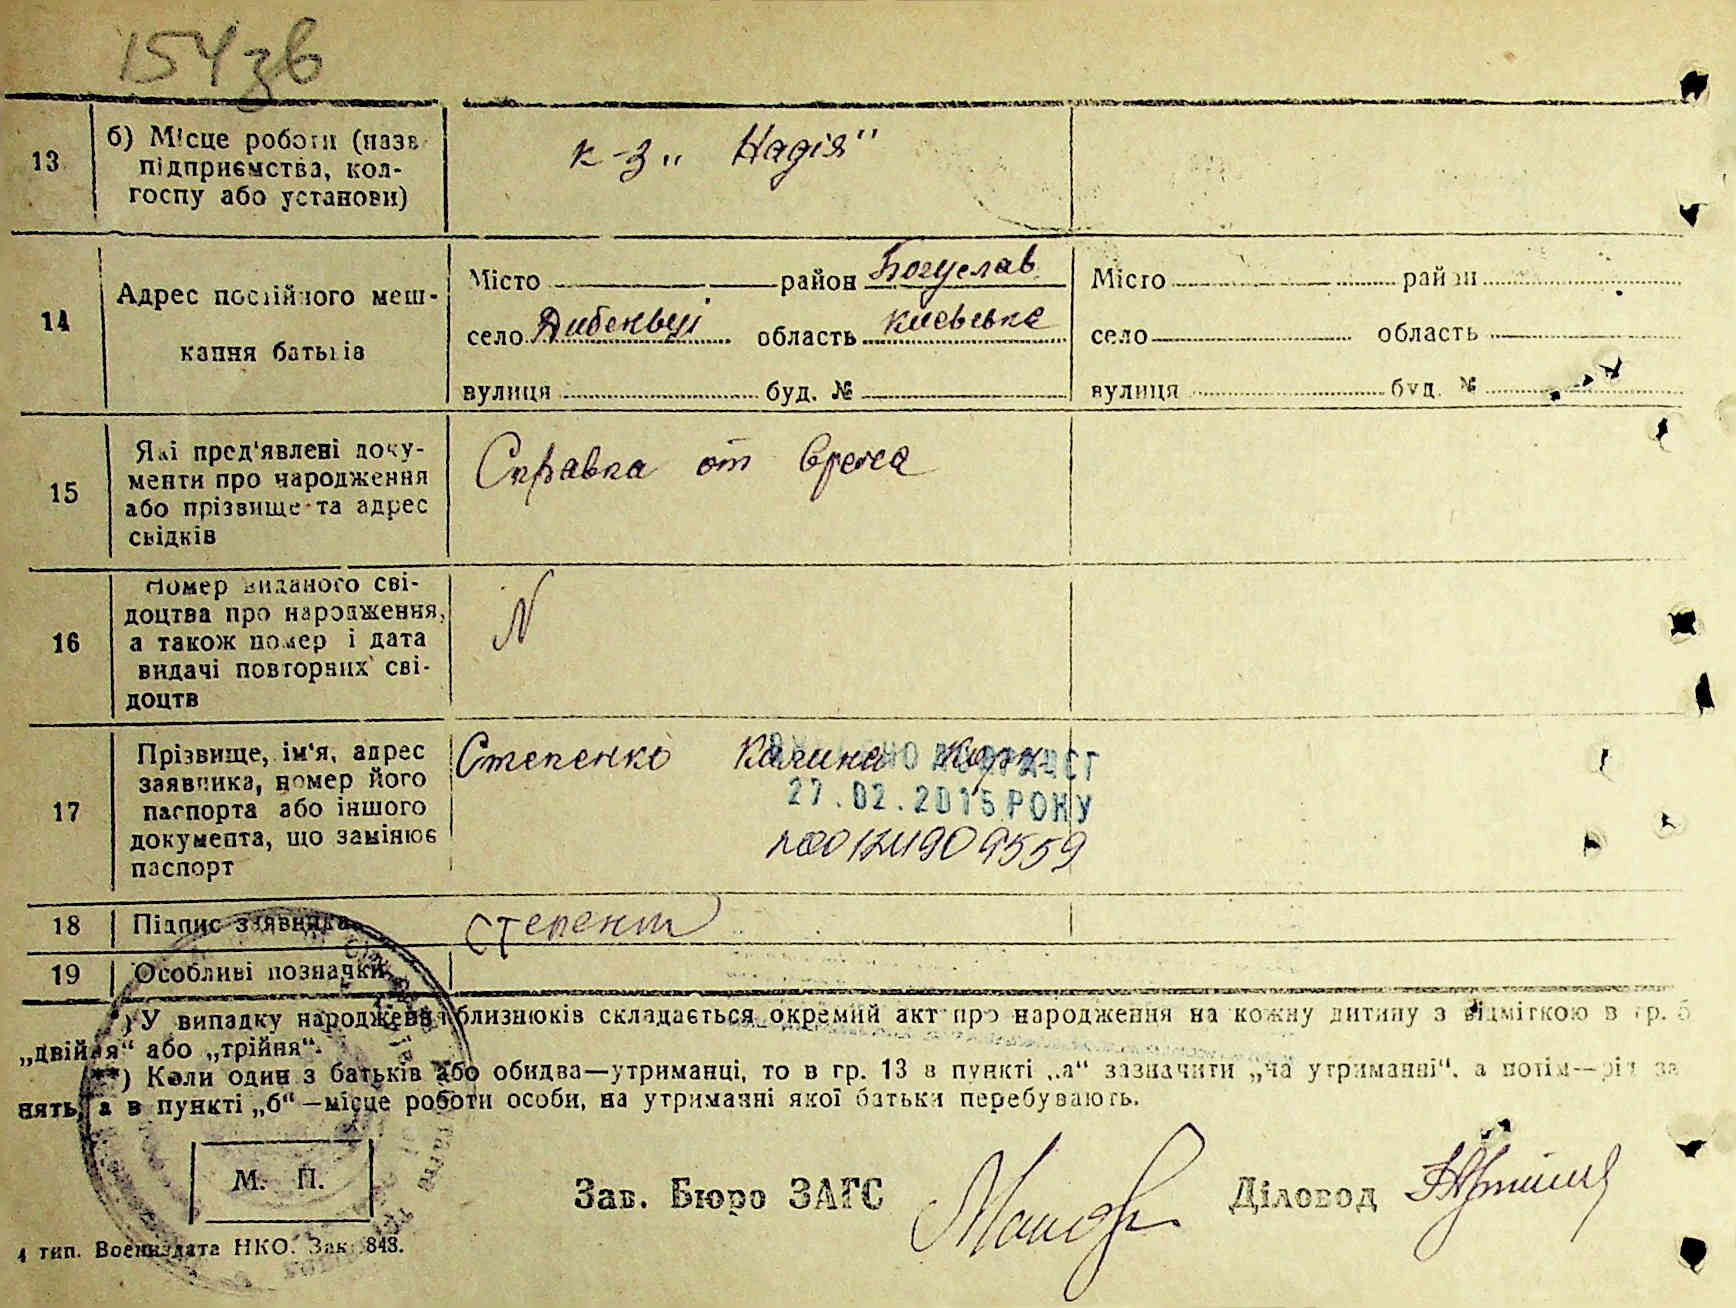 154 зв
13
б) Місце роботи (назв
підприємства, кол-
госпу або установи)
к-з „Надія"
14
Адрес постійного меш-
кання батьків
Місто район Богуслав
село область київська
вулиця буд. №
Місто район
село область
вулиця буд. №
15
Які пред'явлені доку-
менти про народження
або прізвище та адрес
свідків
Справка от
16
Номер виданого сві-
доцтва про народження,
а також номер і дата
видачі повторних сві-
доцтв
N
17
Прізвище, ім'я, адрес
заявника, номер його
паспорта або іншого
документа, що замінює
паспорт
Степенко Калина
27.02.2015 РОКУ
18
Підпис заявника
Степенко
19
Особливі позначки
*) У випадку народження близнюків складається окремий акт про народження на кожну дитину з відміткою в гр. 5
„двійня" або „трійня".
**) Коли один з батьків або обидва—утриманці, то в гр. 13 в пункті „а" зазначити „на утриманні", а потім—рід за
нять, а в пункті „б"—місце роботи особи, на утриманні якої батьки перебувають.
М. П.
Зав. Бюро ЗАГС
Діловод
4 тип. Воениздата НКО. Зак. 848.